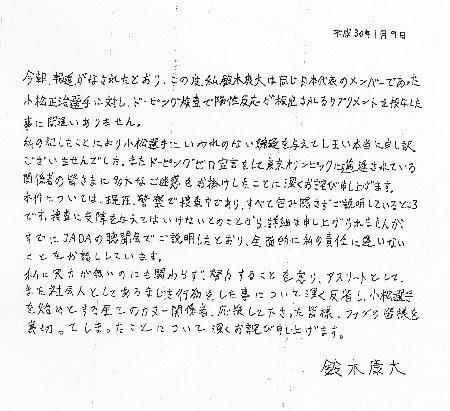 平成30年1月9日
今朝、報道がなされたとおり、この度、私、鈴木康大は同じ日本代表のメンバーであった
小松正治選手に対し、ドーピング検査で陽性反応が検出されるサプリメントを投与した
事に間違いありません。
私の犯したことにより小松選手にいわれのない嫌疑を与えてしまい本当に申し訳
ございませんでした。またドーピングゼロ宣言をして東京オリンピックに邁進されている
関係者の皆さまに多大なご迷惑をお掛けしたことに深くお詫び申し上げます。
本件については、現在、警察で捜査中であり、すべて包み隠さずご説明しているところ
です。捜査に支障を与えてはいけないとのことから、詳細は申し上げられませんが、
すでにJADAの聴聞会でご説明したとおり、全面的に私の責任に違いない
ことをお話ししています。
私に実力が無いのにも関わらず、努力することを怠り、アスリートとして、
また社会人としてあるまじき行為をした事について深く反省し、小松選手
を始めとする全てのカヌー関係者、応援して下さった皆様、ファンの皆様を
裏切ってしまったことについて深くお詫び申し上げます。
鈴木康大